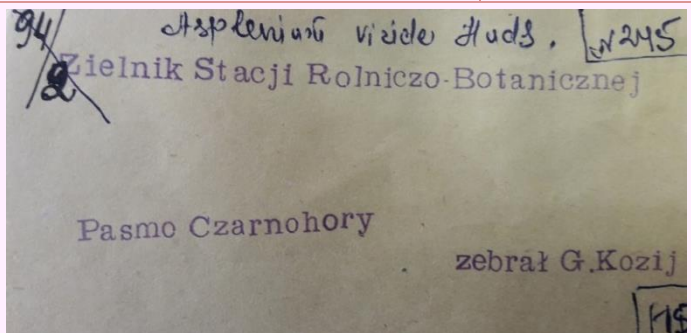 94/2
Asplenium viride Huds. N245
Zielnik Stacji Rolniczo-Botanicznej
Pasmo Czarnohory
zebrał G.Kozij